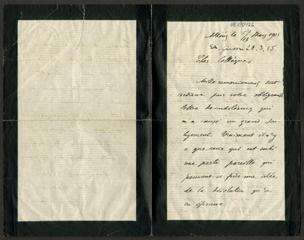 Cher Collègue,
Mille remerciements
pour votre obligeante
lettre de condoléances qui
m'a causé un grand sou-
lagement. Vraiment il n'y
a que ceux qui ont subi
une perte pareille qui
peuvent se faire une idée
de la désolation qu'on
en éprouve